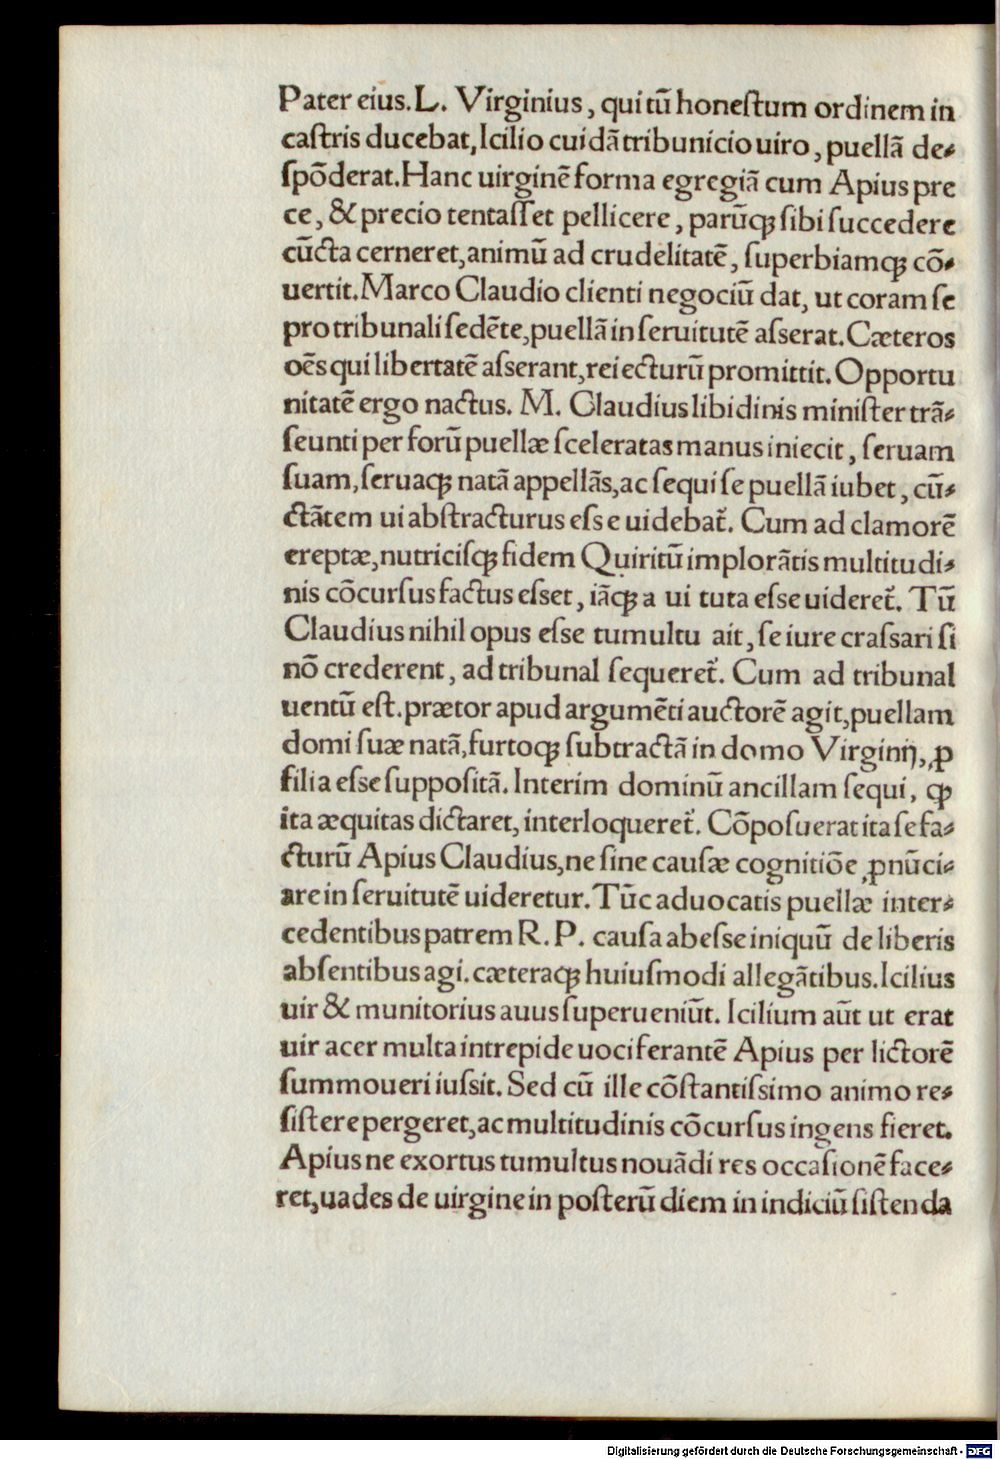 Pater eius. L. Virginius, qui tū honeſtum ordinem in
caſtris ducebat, Icilio cuidā tribunicio uiro, puellā de⸗
ſpōderat. Hanc uirginē forma egregiā cum Apius pre
ce, & precio tentaſſet pellicere, parūqꝫ ſibi ſuccedere
cūcta cerneret, animū ad crudelitatē, ſuperbiamqꝫ cō⸗
uertit. Marco Claudio clienti negociū dat, ut coram ſe
pro tribunali ſedēte, puellā in ſeruitutē aſserat. Cæteros
oēs qui libertatē aſserant, reiecturū promittit. Opportu
nitatē ergo nactus. M. Claudius libidinis miniſter trā⸗
ſeunti per forū puellæ ſceleratas manus iniecit, ſeruam
ſuam, ſeruaqꝫ natā appellās, ac ſequi ſe puellā iubet, cū⸗
ctātem ui abſtracturus eſse uidebat᷑. Cum ad clamorē
ereptæ, nutriciſqꝫ fidem Quiritū implorātis multitudi⸗
nis cōcurſus factus eſset, iāqꝫ a ui tuta eſse uideret᷑. Tū
Claudius nihil opus eſse tumultu ait, ſe iure craſsari ſi
nō crederent, ad tribunal ſequeret᷑. Cum ad tribunal
uentū eſt. prætor apud argumēti auctorē agit, puellam
domi ſuæ natā, furtoqꝫ ſubtractā in domo Virginij, ꝓ
filia eſse ſuppoſitā. Interim dominū ancillam ſequi, ꝙ
ita æquitas dictaret, interloqueret᷑. Cōpoſuerat ita ſe fa⸗
cturū Apius Claudius, ne ſine cauſæ cognitiōe ꝓnūci⸗
are in ſeruitutē uideretur. Tūc aduocatis puellæ inter⸗
cedentibus patrem R. P. cauſa abeſse iniquū de liberis
abſentibus agi. cæteraqꝫ huiuſmodi allegātibus. Icilius
uir & munitorius auus ſuperueniūt. Icilium aūt ut erat
uir acer multa intrepide uociferantē Apius per lictorē
ſummoueri iuſsit. Sed cū ille cōſtantiſsimo animo re⸗
ſiſtere pergeret, ac multitudinis cōcurſus ingens fieret.
Apius ne exortus tumultus nouādi res occaſionē face⸗
ret, uades de uirgine in poſterū diem in indiciū ſiſtenda
Digitalisierung gefördert durch die Deutsche Forschungsgemeinschaft - DFG